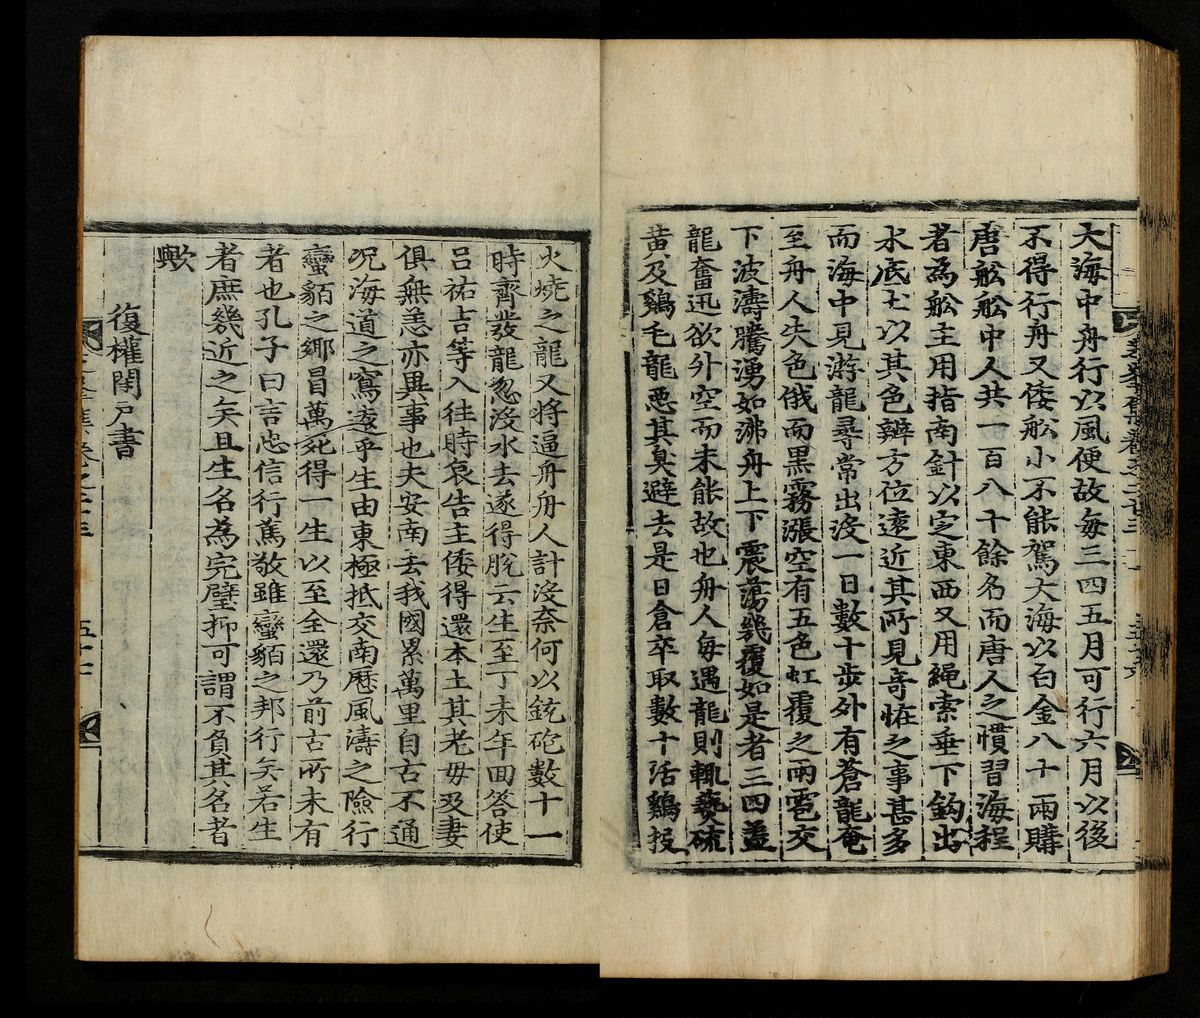 大海中舟行以風便故每三四五月可行六月以後
不得行舟又倭舩小不能駕大海以白金八十兩購
唐舩舩中人共一百八十餘名而唐人之慣習海程
者為舩主用指南針以定東西又用繩索垂下鈎出
水底土以其色辨方位遠近其所見奇恠之事甚多
而海中見游龍尋常出沒一日數十步外有蒼龍奄
至舟人失色俄而黑霧漲空有五色虹覆之雨雹交
下波濤騰湧如沸舟上下震蕩幾覆如是者三四盖
龍奮迅欲外空而未能故也舟人每遇龍則輒爇硫
黃及鷄毛龍惡其臭避去是日倉卒取數十活鷄投
火燒之龍又將逼舟舟人計沒奈何以銃砲數十一
時齊發龍忽沒水去遂得脫云生至丁未年回答使
呂祐吉等入徃時哀告主倭得還本土其老母及妻
俱無恙亦異事也夫安南去我國累萬里自古不通
况海道之寫遠乎生由東極抵交南歷風濤之險行
蠻貊之鄉冒萬死得一生以至全還乃前古所未有
者也孔子曰言忠信行篤敬雖蠻貊之邦行矣若生
者庶幾近之矣且生名為完璧抑可謂不負其名者
歟
復權閑戶書